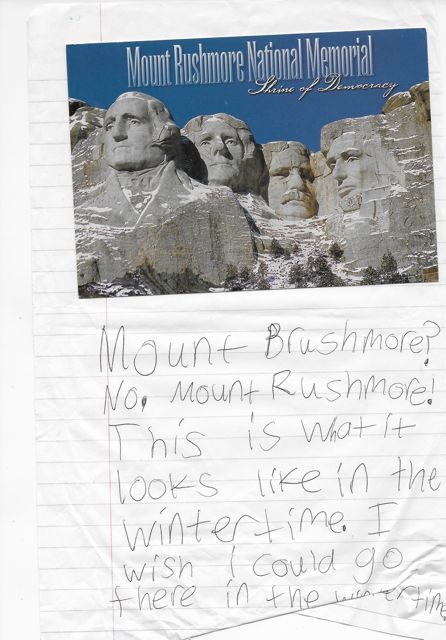 Mount Rushmore National Memorial
Shrine of Democracy
Mount Brushmore?
No, Mount Rushmore!
This is what it
looks like in the
wintertime. I
wish I could go
there in the wintertime